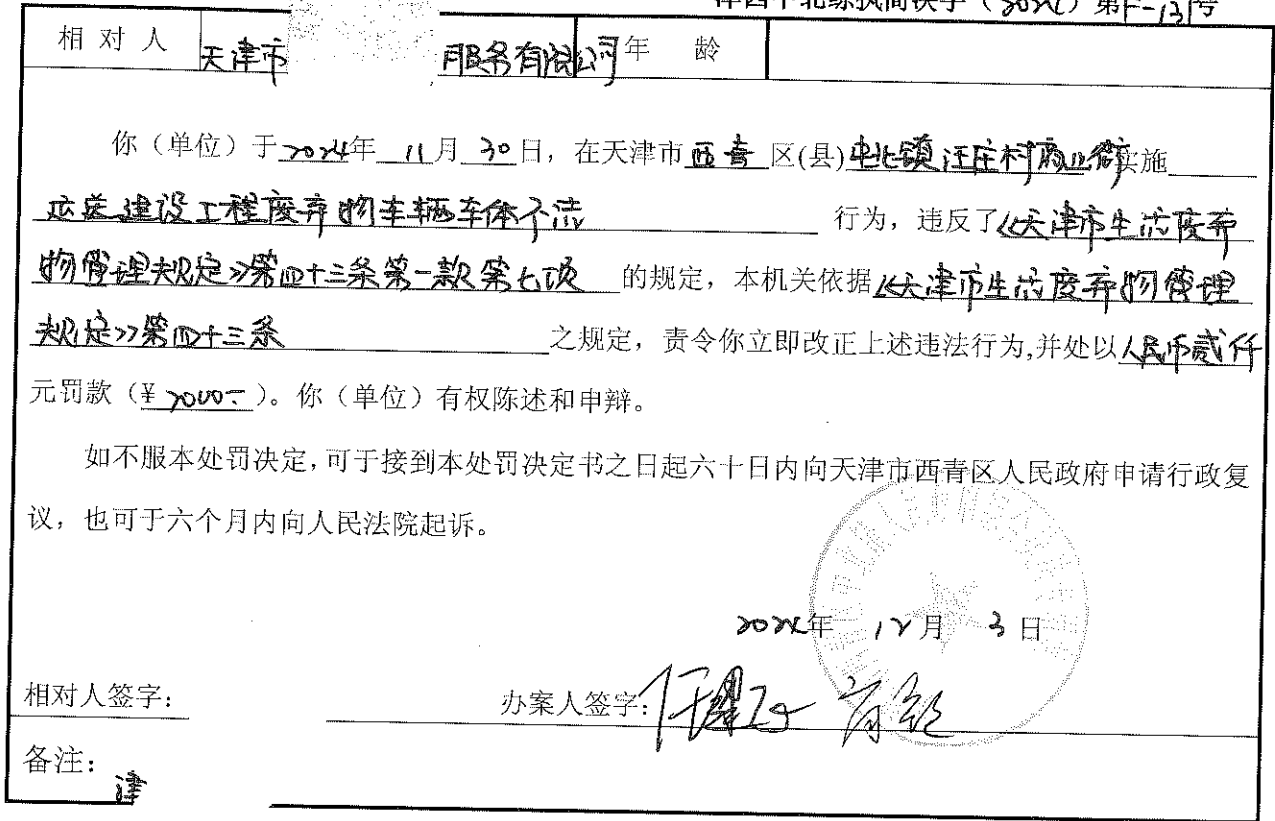 津西中北综执简决字（2024）第F-131号
相对人 天津市 服务有限公司 年龄
你（单位）于2024年 11月 30日，在天津市 西青 区(县)中北镇汪庄村商业街实施
运送建设工程废弃物车辆车体不洁 行为，违反了《天津市生活废弃
物管理规定》第四十三条第一款第七项 的规定，本机关依据《天津市生活废弃物管理
规定》第四十三条 之规定，责令你立即改正上述违法行为,并处以人民币贰仟
元罚款（¥2000- ）。你（单位）有权陈述和申辩。
如不服本处罚决定，可于接到本处罚决定书之日起六十日内向天津市西青区人民政府申请行政复
议，也可于六个月内向人民法院起诉。
2024年 12月 3日
相对人签字： 办案人签字：
备注：
津